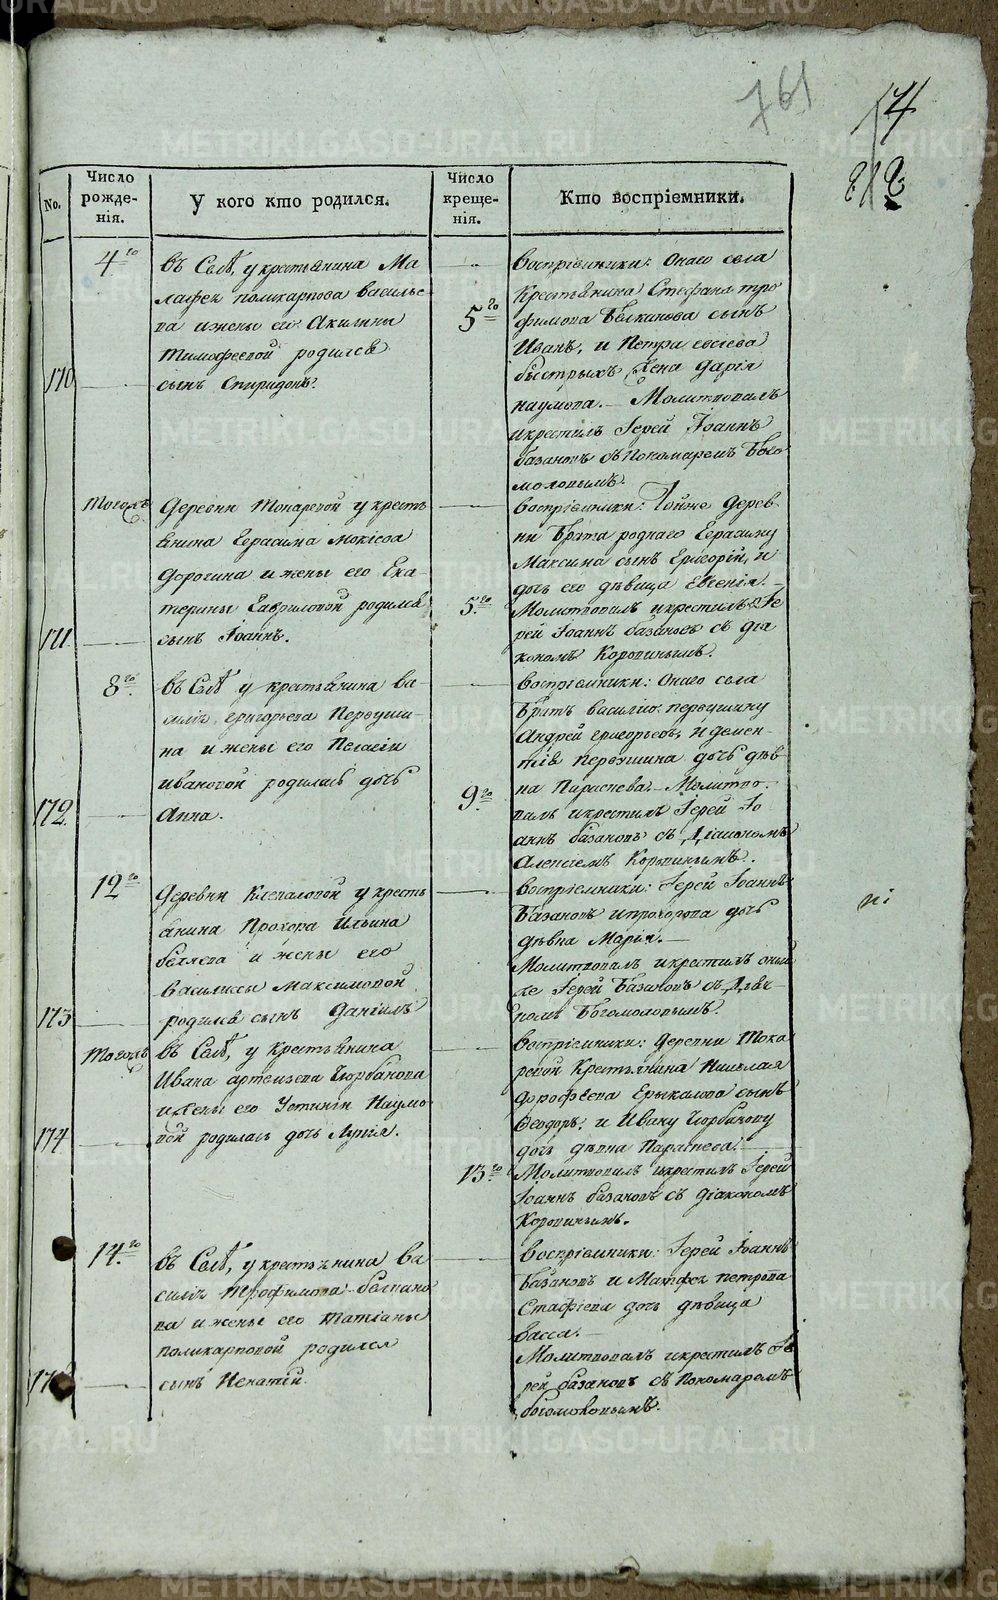 METRIKI.GASO-URAL.RU
761
No.
Число рожде-нія.
У кого кто родился.
Число креще-нія.
Кто воспріемники.
170
4го
въ Селѣ, у крестьянина Ма
лафея поликарпова василье
ва и жены его Акилины
Тимофеевой родился
сынъ Спиридонъ.
5го
Воспріемники: Онаго села
Крестьянина Стефана тро
фимова сынъ
Иванъ, и Петра
быстрыхъ жена Дарія
наумова. Молитвовалъ
и крестилъ Іерей Іоаннъ
базановъ съ Пономаремъ Бого
моловымъ.
171
Тогожъ
Деревни Токаревой у кресть
янина Герасима Мокіева
Дорогина и жены его Ека-
терины Гавриловой родился
сынъ Іоаннъ.
5го
Воспріемники: Тойже Дерев-
ни Брата роднаго Герасиму
Максима сынъ Григорій, и
дочь его дѣвица Евгенія.
Молитвовалъ и крестилъ Іе
рей Іоаннъ базановъ съ діа
кономъ Коровинымъ.
172
8го
въ Селѣ у крестьянина ва-
силія григорьева Первуши-
на и жены его Пелагіи
ивановой родилась дочь
Анна.
9го
Воспріемники: Онаго села
Братъ василію первушину
Андрей григорьевъ, и демен-
тія первушина дочь дѣв-
на Параскева. Молитво-
валъ и крестилъ Іерей Іо
аннъ базановъ съ Діакономъ
Алексіемъ Коровинымъ.
173
12го
Деревни Клепаловой у кресть
янина Прохора Ильина
беляева и жены его
василисы Максимовой
родился сынъ Даніилъ
Воспріемники: Іерей Іоаннъ
Базановъ и прохорова дочь
дѣвка Марія.
Молитвовалъ и крестилъ оный
же Іерей Базановъ съ Дьяч
комъ Богомоловымъ.
174
Тогожъ
въ Селѣ, у Крестьянина
Ивана артемьева Чюрбанова
и жены его Устиніи Наумо
вой родилась дочь Лукія.
13го
Воспріемники: деревни Тока
ревой Крестьянина Николая
дорофеева Ерыкалова сынъ
Феодоръ. и Ивану Чюрбанову
дочь дѣвка Параскева.
Молитвовалъ и крестилъ Іерей
Іоаннъ базановъ съ діакономъ
Коровинымъ.
14го
въ Селѣ, у крестьянина Ва
силія трофимова
ва и жены его татіаны
поликарповой родился
сынъ Игнатій.
Воспріемники: Іерей Іоаннъ
Базановъ и Матфея петрова
Стафѣева дочь дѣвица
васса.
Молитвовалъ и крестилъ Іе
рей базановъ съ Пономаремъ
богомоловымъ.